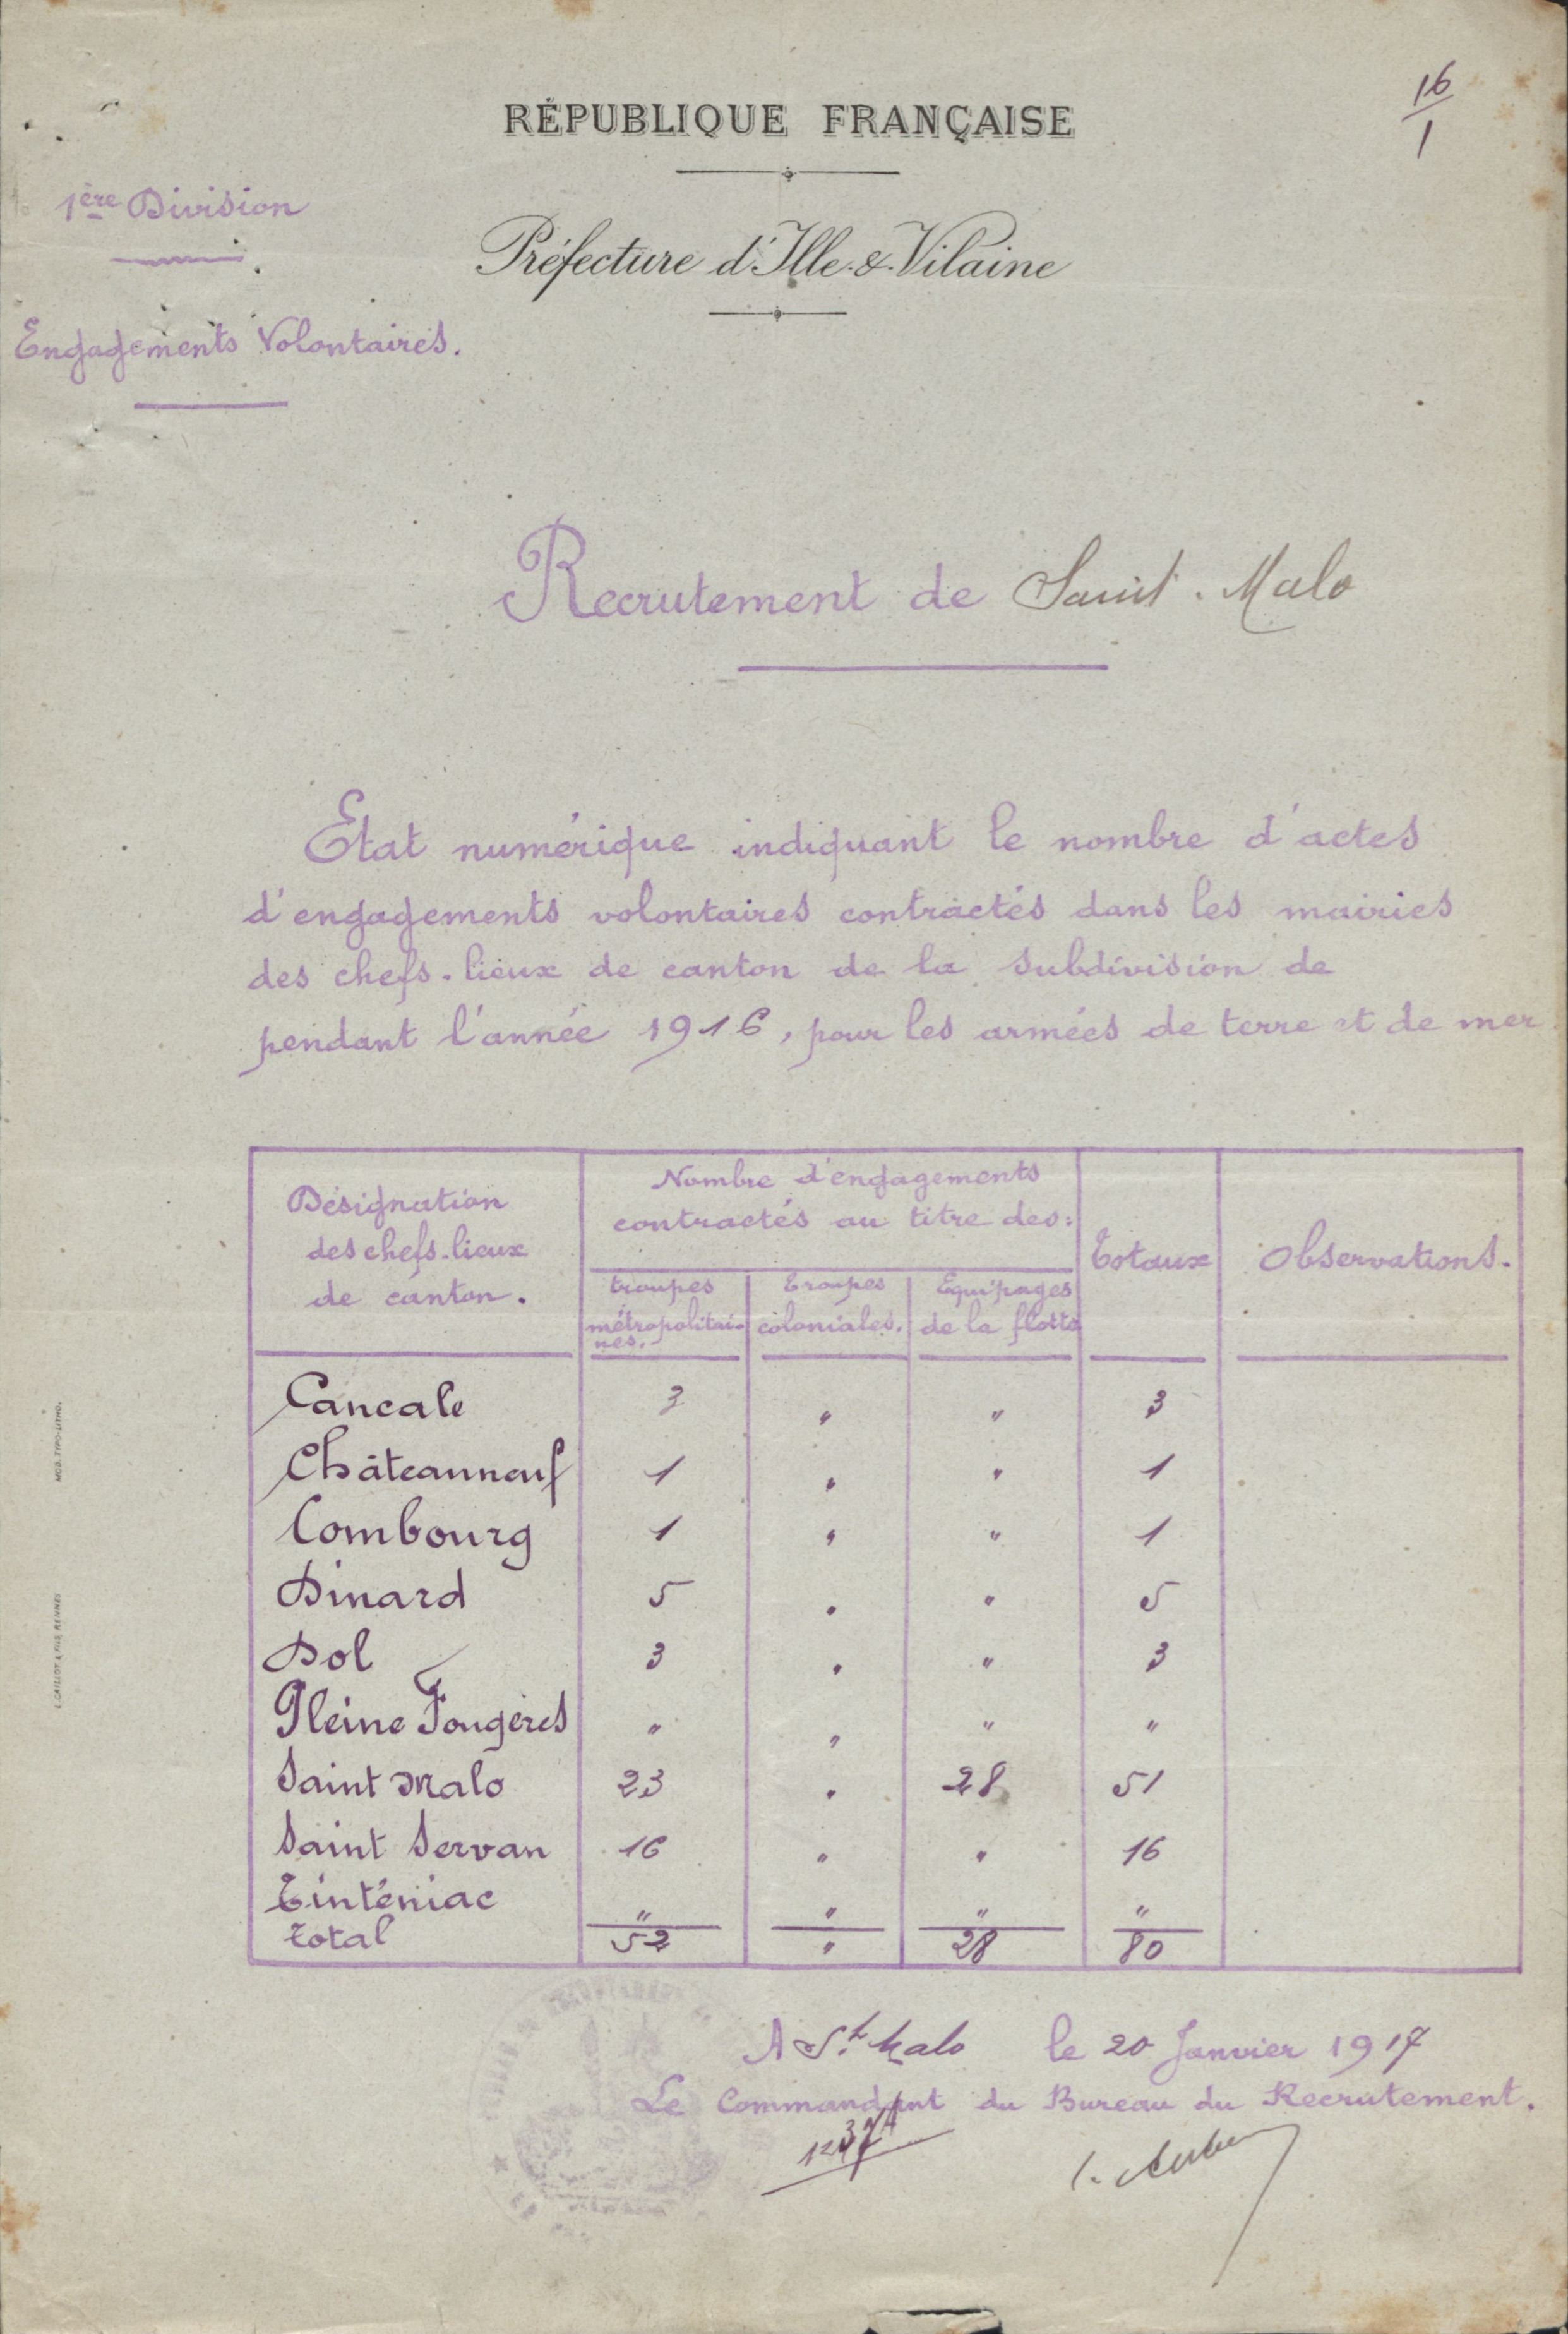 16
1
RÉPUBLIQUE FRANÇAISE
1ère Division
Préfecture d'Ille-&-Vilaine
Engagements Volontaires.
Recrutement de Saint-Malo
Etat numérique indiquant le nombre d'actes
d'engagements volontaires contractés dans les mairies
des chefs-lieux de canton de la subdivision de
pendant l'année 1916, pour les armées de terre et de mer
Désignation des chefs-lieux de canton. Nombre d'engagements contractés au titre des: Totaux Observations.
troupes métropolitai-nes. Troupes coloniales. Equipages de la flotte
Cancale 3 " " 3
Châteauneuf 1 " " 1
Combourg 1 " " 1
Dinard 5 " " 5
Dol 3 " " 3
Pleine Fougères " " " "
Saint Malo 23 " 28 51
Saint Servan 16 " " 16
Tinténiac " " " "
total 52 " 28 80
A St Malo le 20 Janvier 1917
Le Commandant du Bureau du Recrutement.